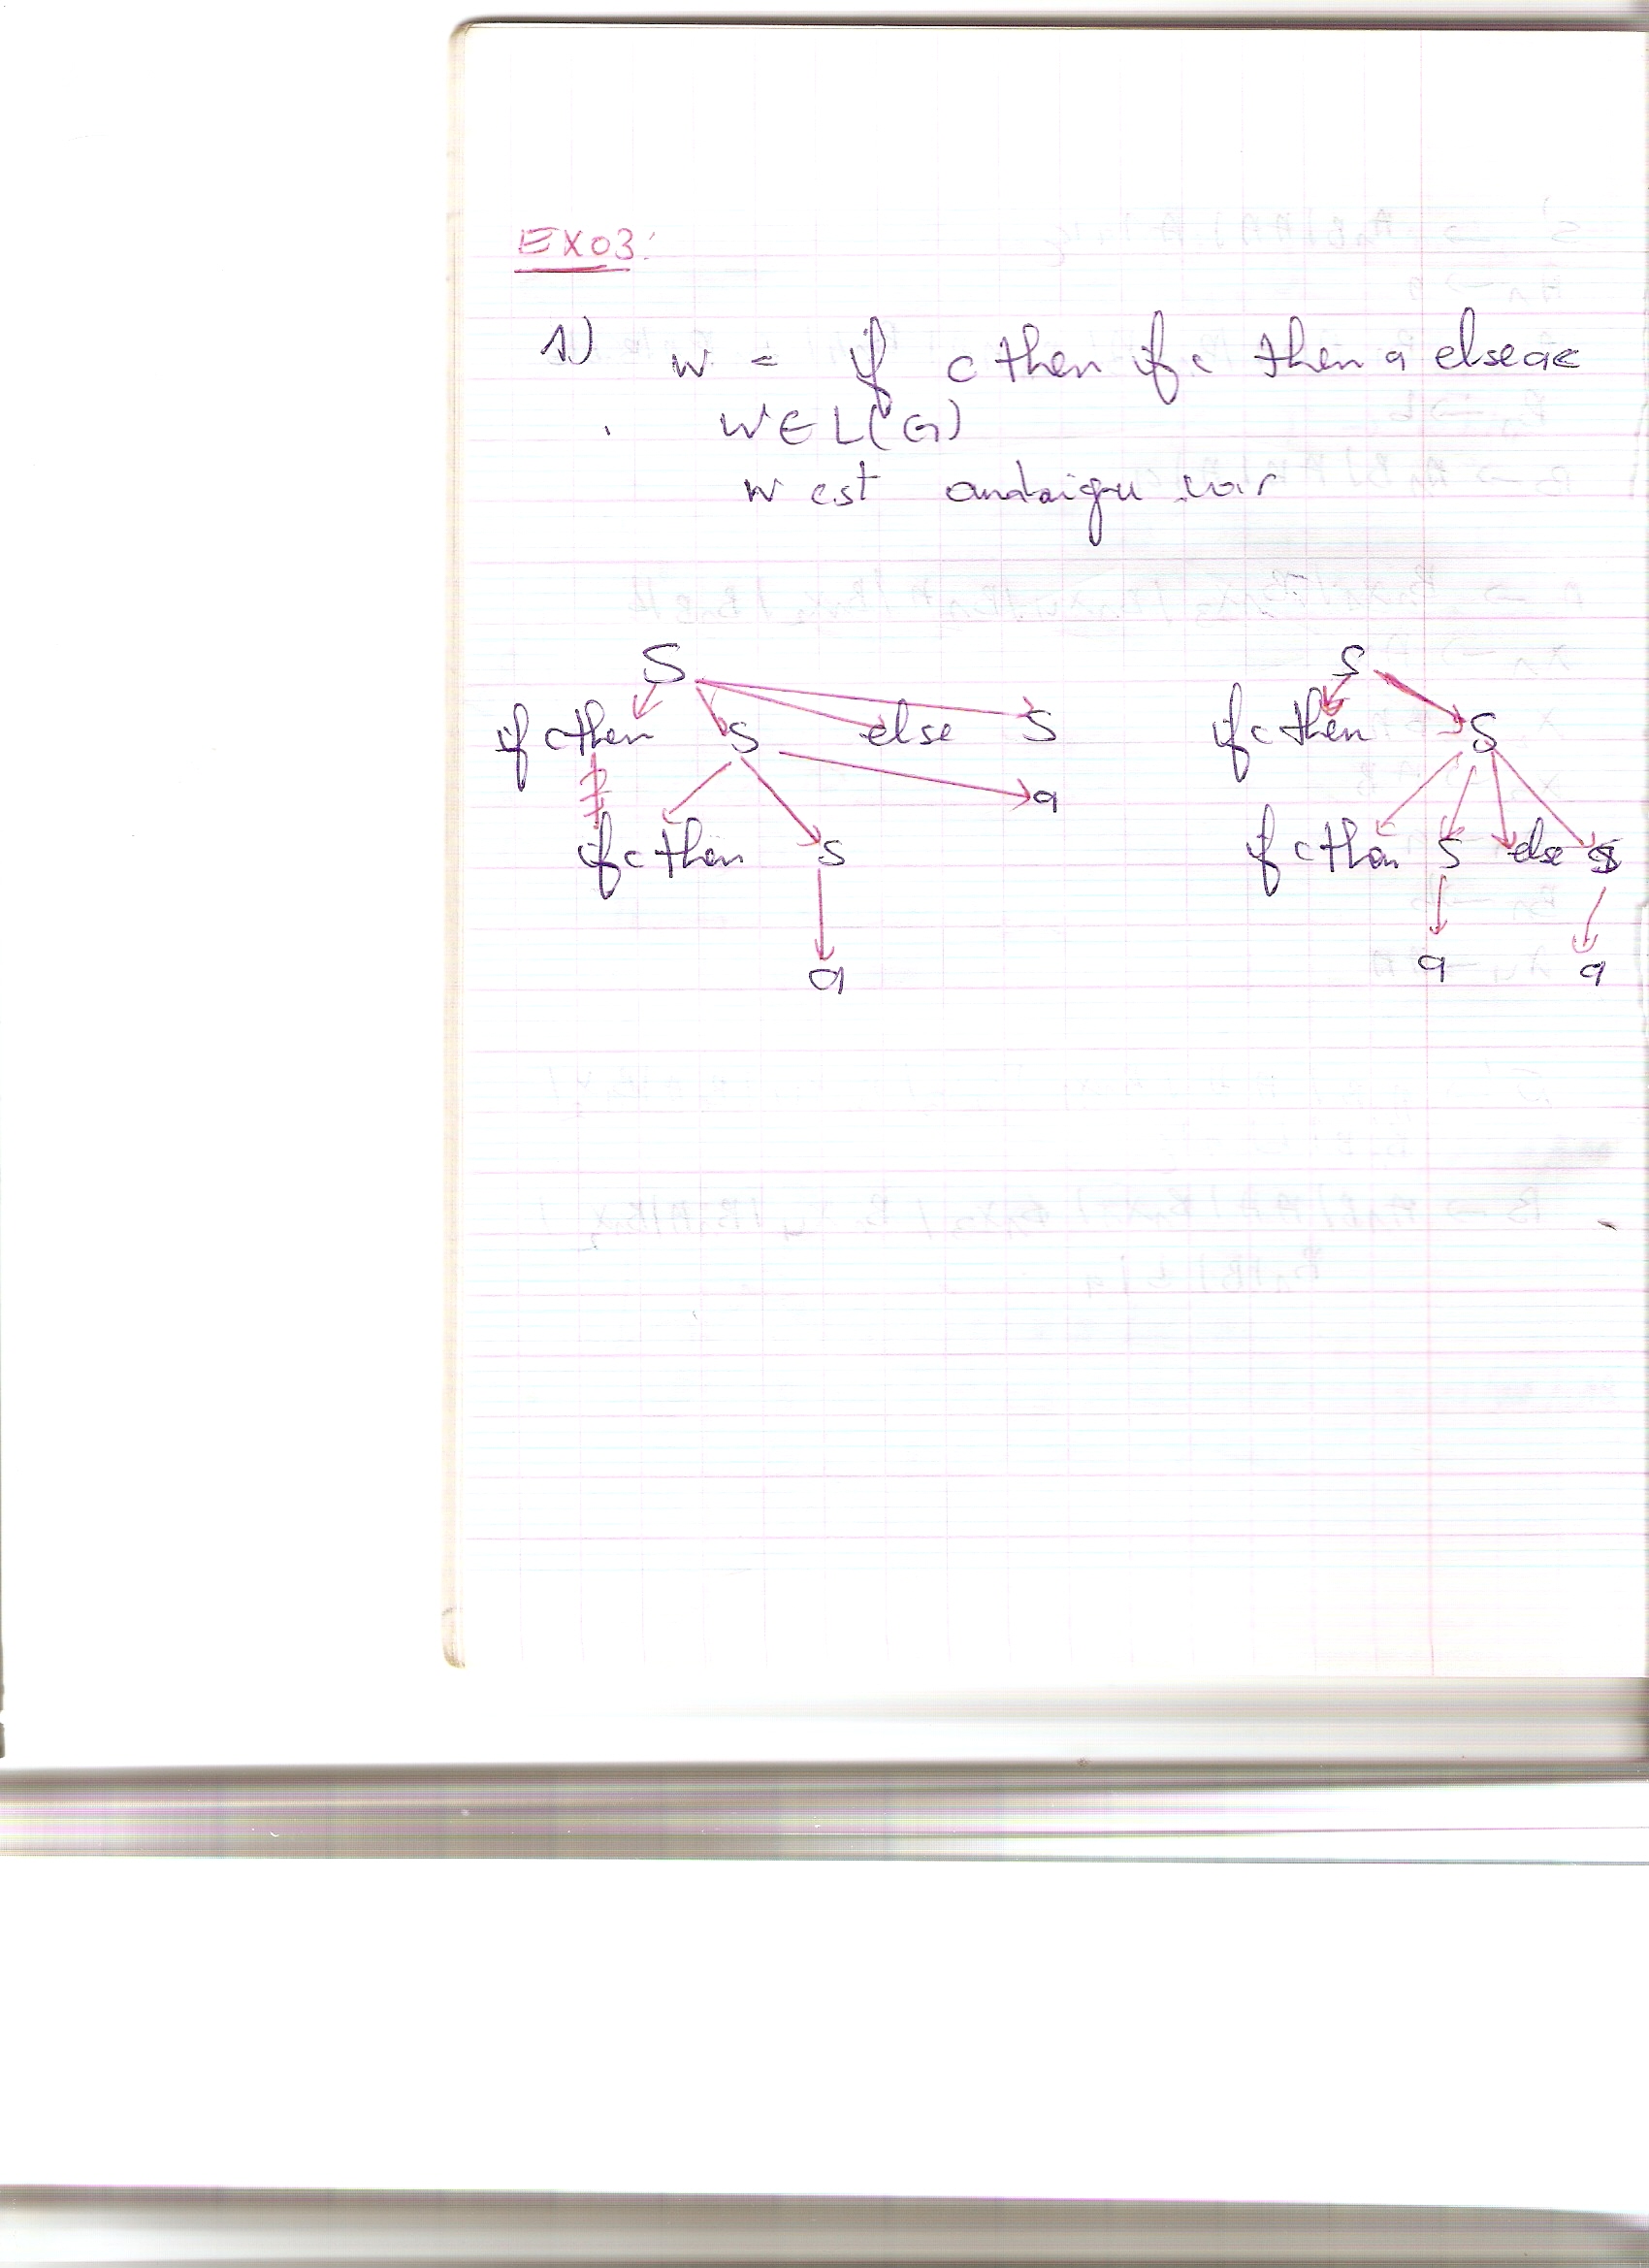 EXO3:
1) w = if c then if c then a else a ∈
w ∈ L(G)
w est car
S S
if c then S else S if c then S
a
if c then S if c then S else S
a a a